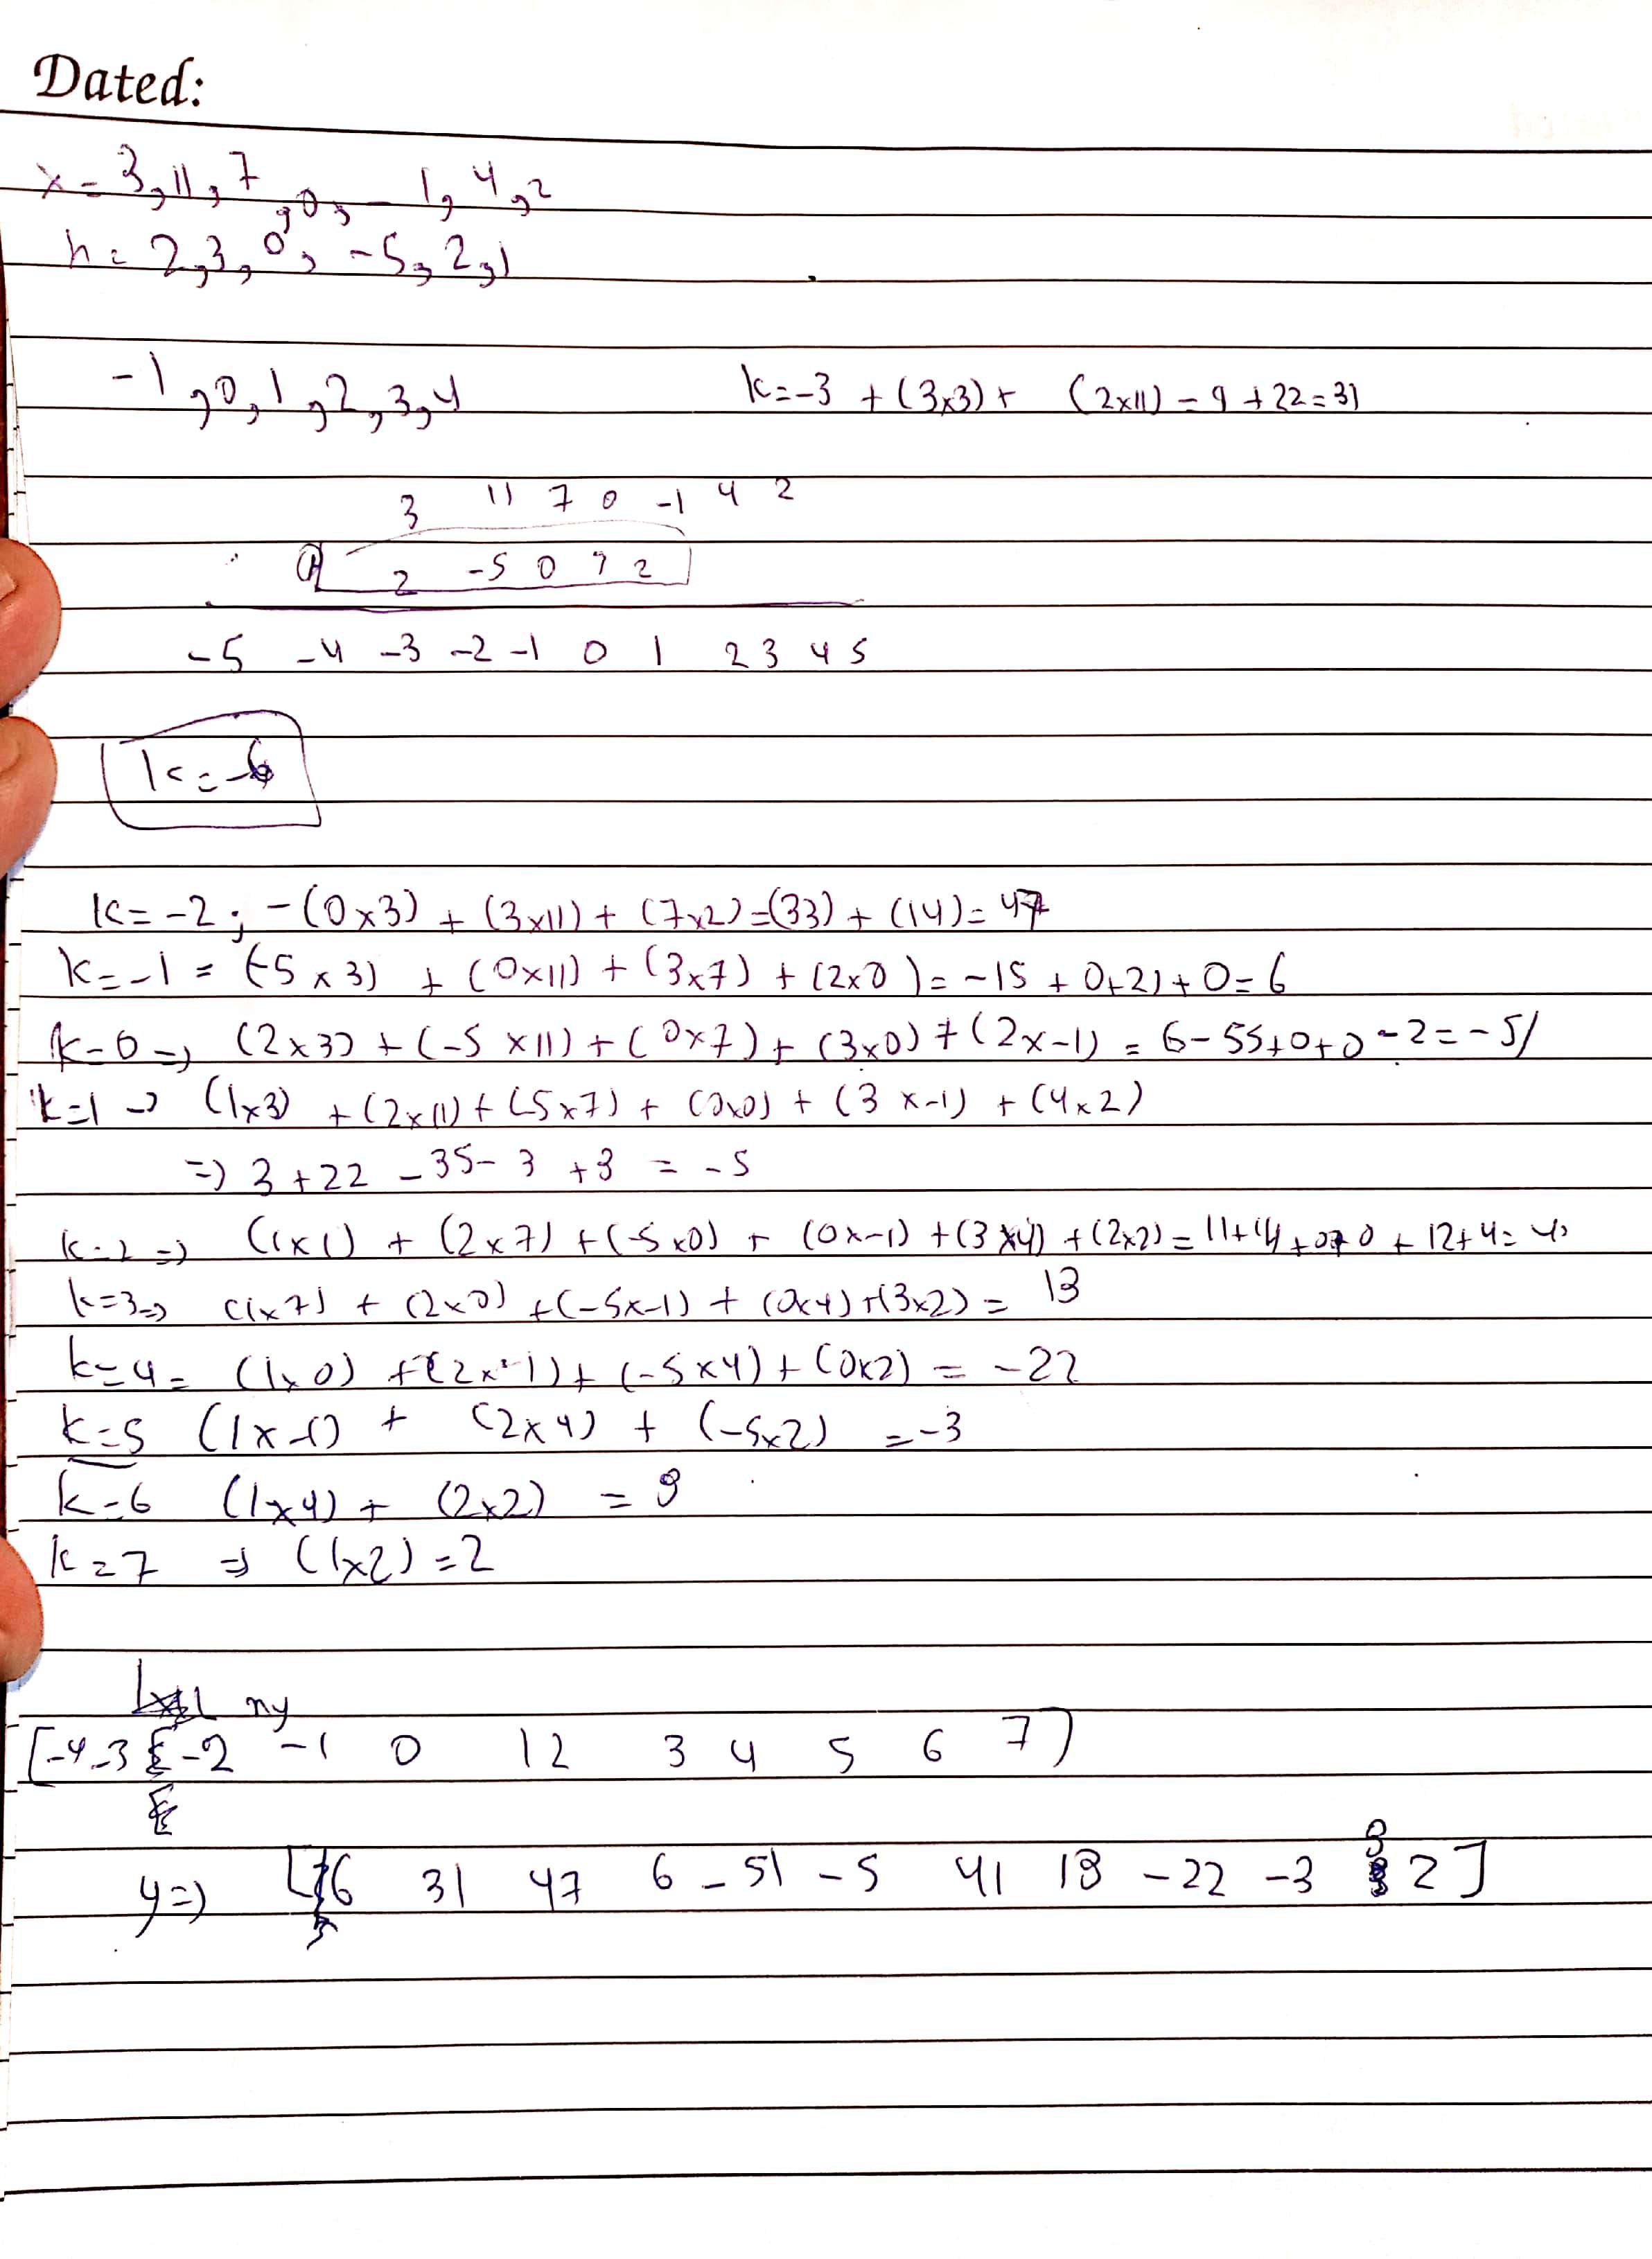 Dated:
x = 3, 11, 7, 0, -1, 4, 2
h = 2, 3, 0, -5, 2, 1
-1, 0, 1, 2, 3, 4
k=-3 + (3x3) + (2x11) = 9 + 22 = 31
3 11 7 0 -1 4 2
2 -5 0 3 2
-5 -4 -3 -2 -1 0 1 2 3 4 5
k=-6
k= -2; -(0x3) + (3x11) + (7x2) = (33) + (14) = 47
k=-1 = (-5 x 3) + (0x11) + (3x7) + (2x0) = -15 + 0+21+0=6
k=0 => (2x3) + (-5 x11) + (0x7) + (3x0) + (2x-1) = 6-55+0+0-2=-51
k=1 -> (1x3) + (2x11) + (-5x7) + (0x0) + (3 x-1) + (4x2)
=> 3 + 22 - 35 - 3 + 8 = -5
k=2 => (1x11) + (2x7) + (-5x0) + (0x-1) + (3x4) + (2x2) = 11+14+0+0+12+4=41
k=3=> (1x7) + (2x0) + (-5x-1) + (0x4) + (3x2) = 18
k=4= (1x0) + (2x-1) + (-5x4) + (0x2) = -22
k=5 (1x-1) + (2x4) + (-5x2) = -3
k=6 (1x4) + (2x2) = 8
k=7 => (1x2) = 2
ny
[-4 -3 -2 -1 0 1 2 3 4 5 6 7]
y=> [6 31 47 6 -51 -5 41 18 -22 -3 8 2]